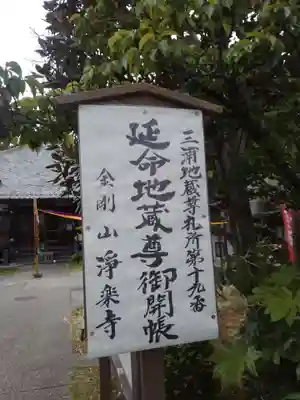 三浦地蔵尊札所第十九番
延命地蔵尊御開帳
金剛山浄楽寺